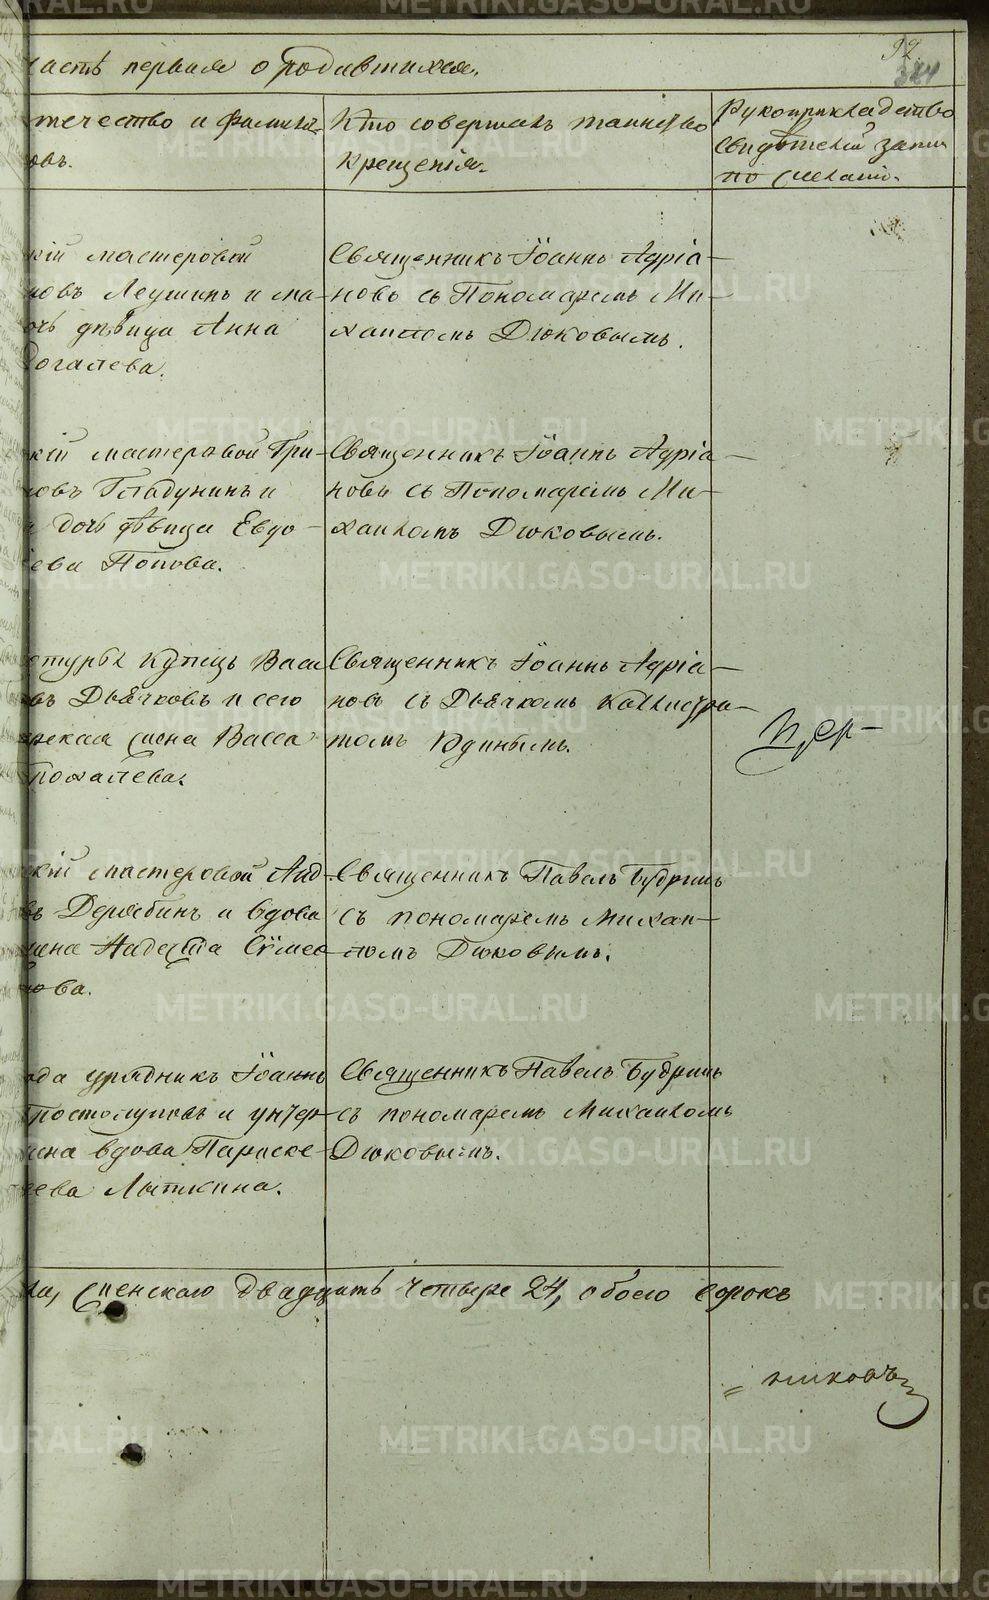 часть первая о родившихся.
92
384
отчество и фамилія
овъ.
Кто совершалъ таинство
крещенія.
Рукоприкладство
свидѣтелей записи
по желанію.
кій мастеровой
новъ Леушинъ и ма-
очь дѣвица Анна
Рогалева.
Священникъ Іоаннъ Адріа-
новъ съ Пономаремъ Ми-
хаиломъ Дюковымъ.
кій мастеровой Гри-
ловъ Гладунинъ и
дочь дѣвица Евдо-
ева Попова.
Священникъ Іоаннъ Адріа-
новъ съ Пономаремъ Ми-
хаиломъ Дюковымъ.
отурья купецъ Васи
въ Дьячковъ и сего
жена Васса
Пожалева.
Священникъ Іоаннъ Адріа-
новъ съ Дьячкомъ Каллистра-
томъ Юдинымъ.
И, ер-
кій мастеровой Анд-
въ Дерябинъ и вдова
жена Надежда Сѵмео
ова.
Священникъ Павелъ Будринъ
съ пономаремъ Михаи-
ломъ Дюковымъ.
ода урядникъ Іоаннъ
Простолуповъ и унтер-
жена вдова Параске-
ева Лыткина.
Священникъ Павелъ Будринъ
съ пономаремъ Михаиломъ
Дюковымъ.
ла, женскаго двадцать четыре 24, обоего сорокъ
= никовъ
METRIKI.GASO-URAL.RU